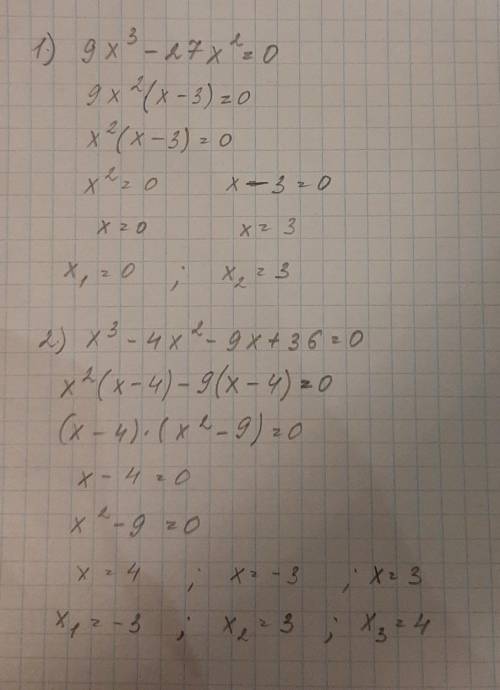 1.) 9x³ - 27x² = 0
9x²(x-3) = 0
x²(x-3) = 0
x² = 0 x - 3 = 0
x = 0 x = 3
x₁ = 0 ; x₂ = 3
2.) x³ - 4x² - 9x + 36 = 0
x²(x-4) - 9(x-4) = 0
(x-4)·(x²-9) = 0
x - 4 = 0
x² - 9 = 0
x = 4 ; x = -3 ; x = 3
x₁ = -3 ; x₂ = 3 ; x₃ = 4